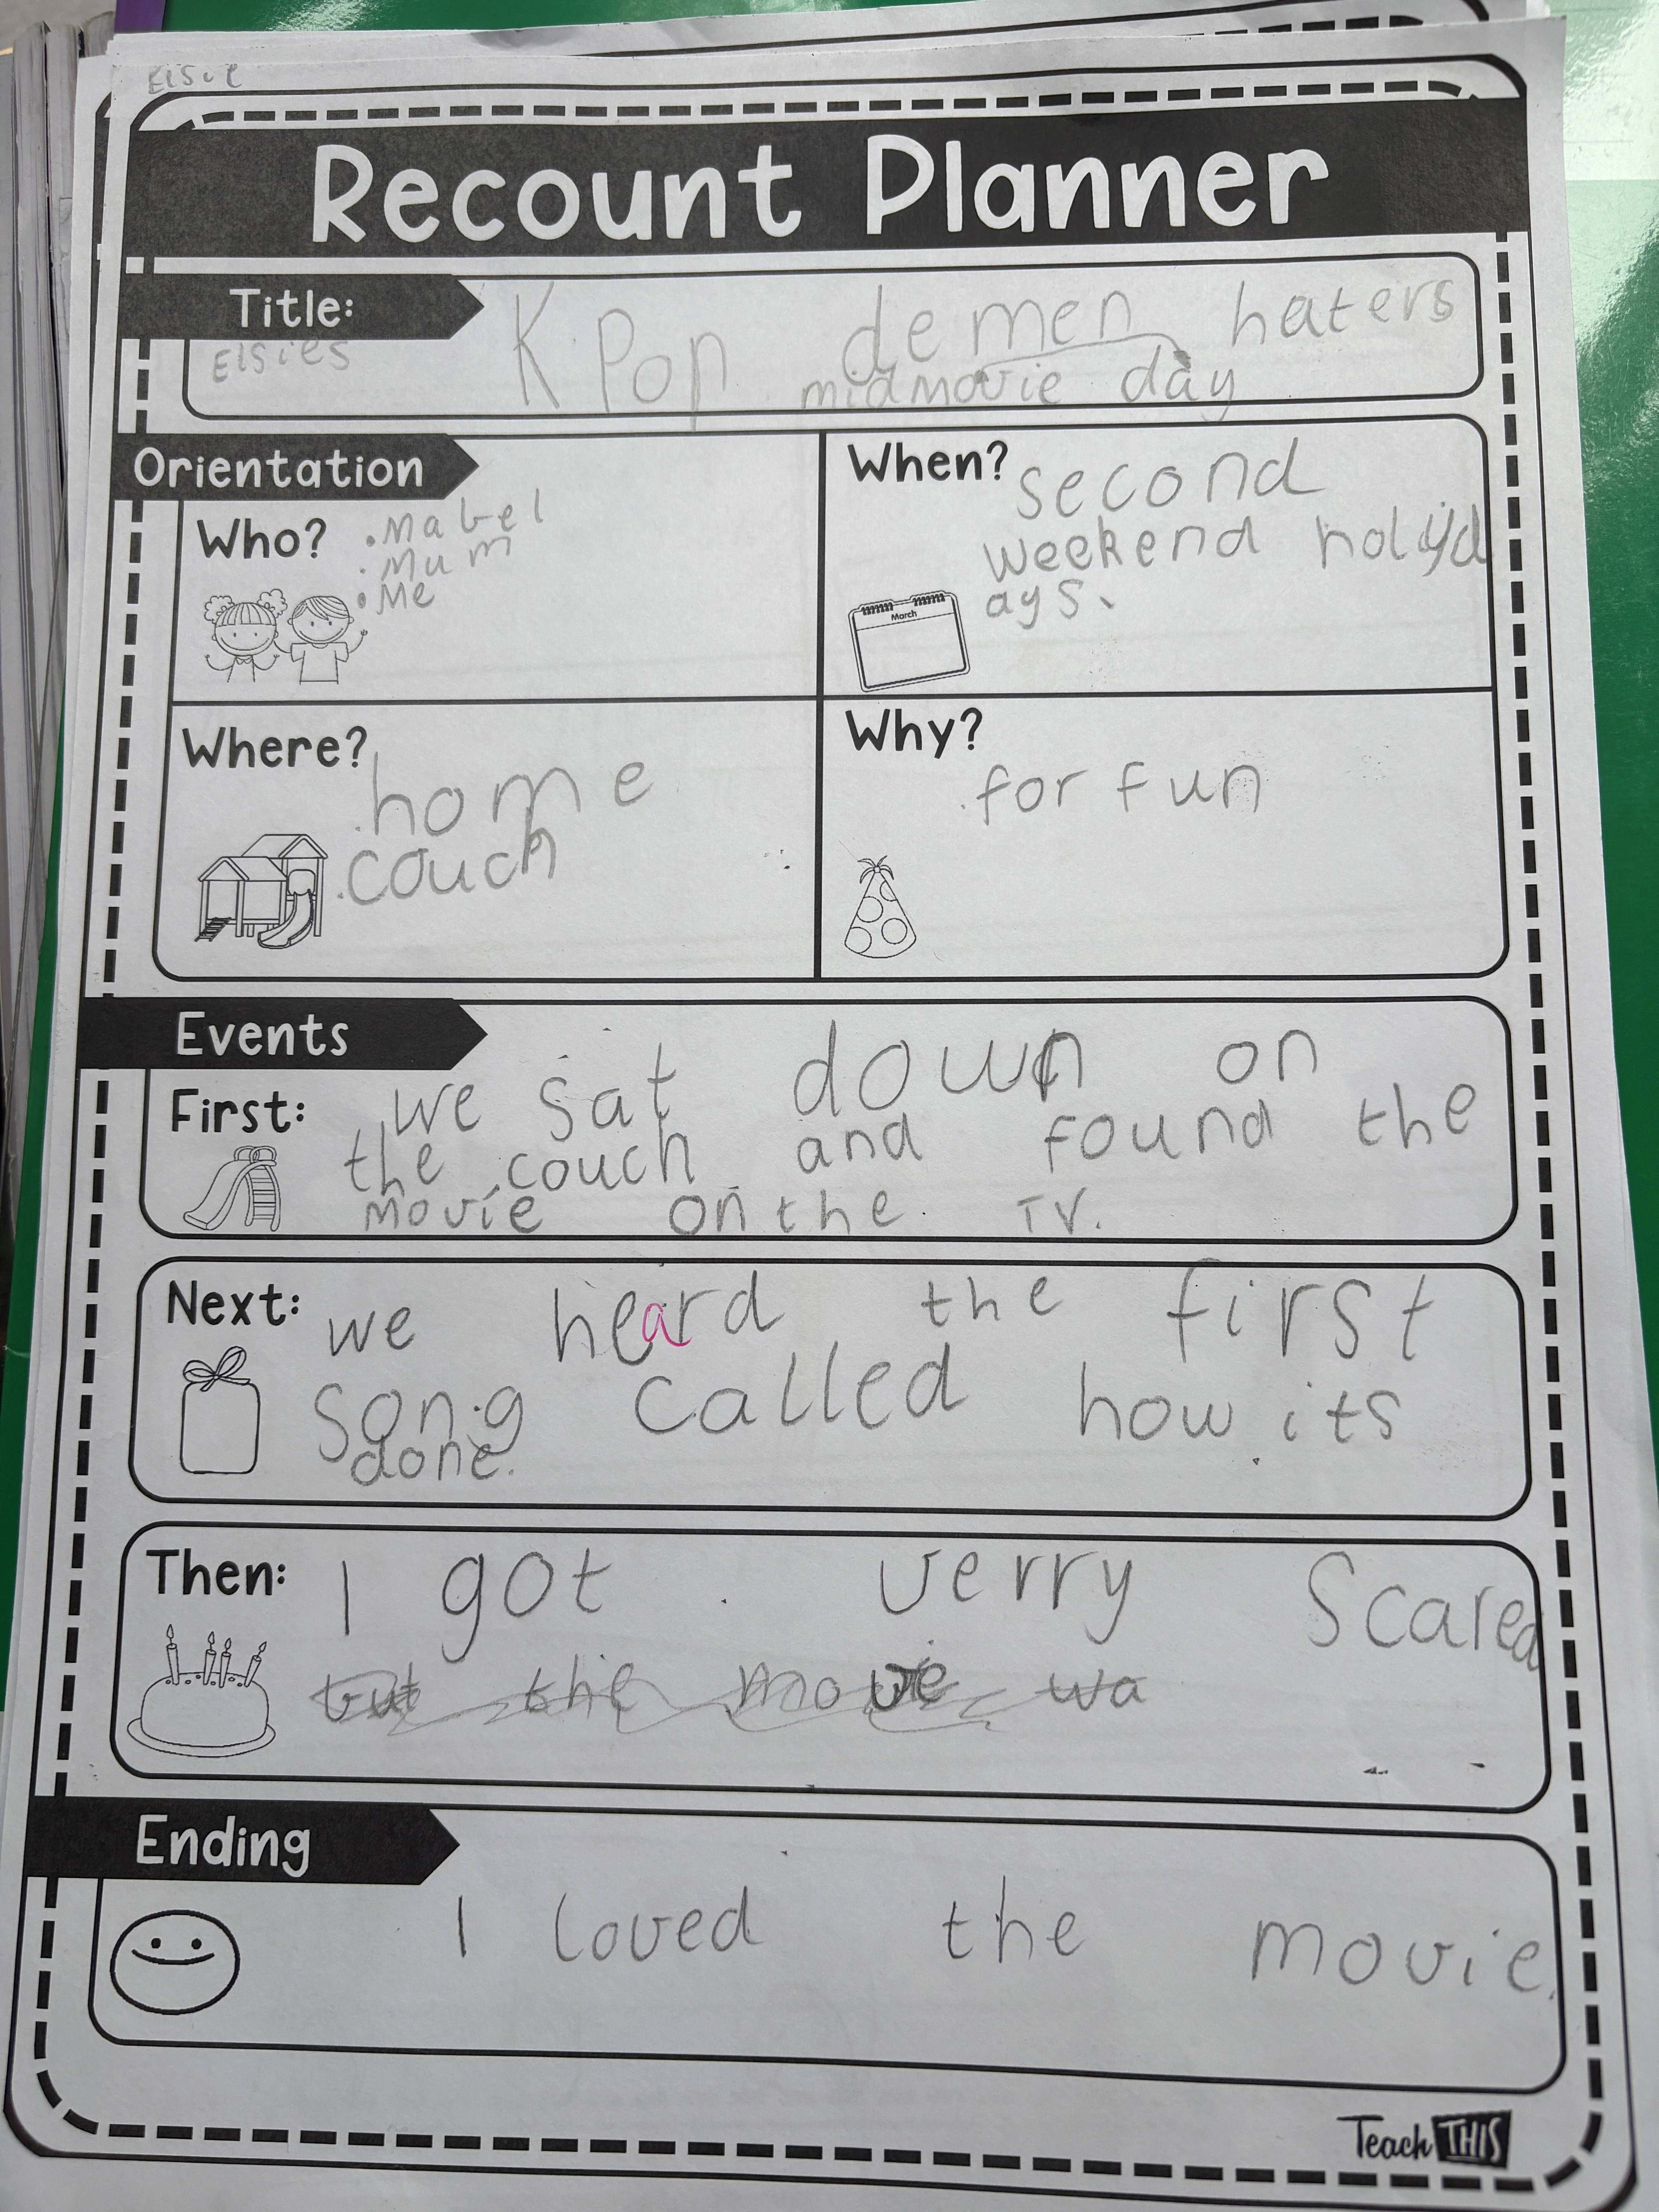 Elsie
Recount Planner
Title:
K Pop demen haters
Elsies
midmovie day
Orientation
Who?
. Mabel
. Mum
. Me
When?
second
weekend holyd
ays.
Where?
. home
. couch
Why?
. for fun
Events
First:
we sat down on
the couch and found the
movie on the TV.
Next:
we heard the first
song called how its
done.
Then:
I got verry Scared
but the movie wa
Ending
I loved the movie.
March
Teach THIS